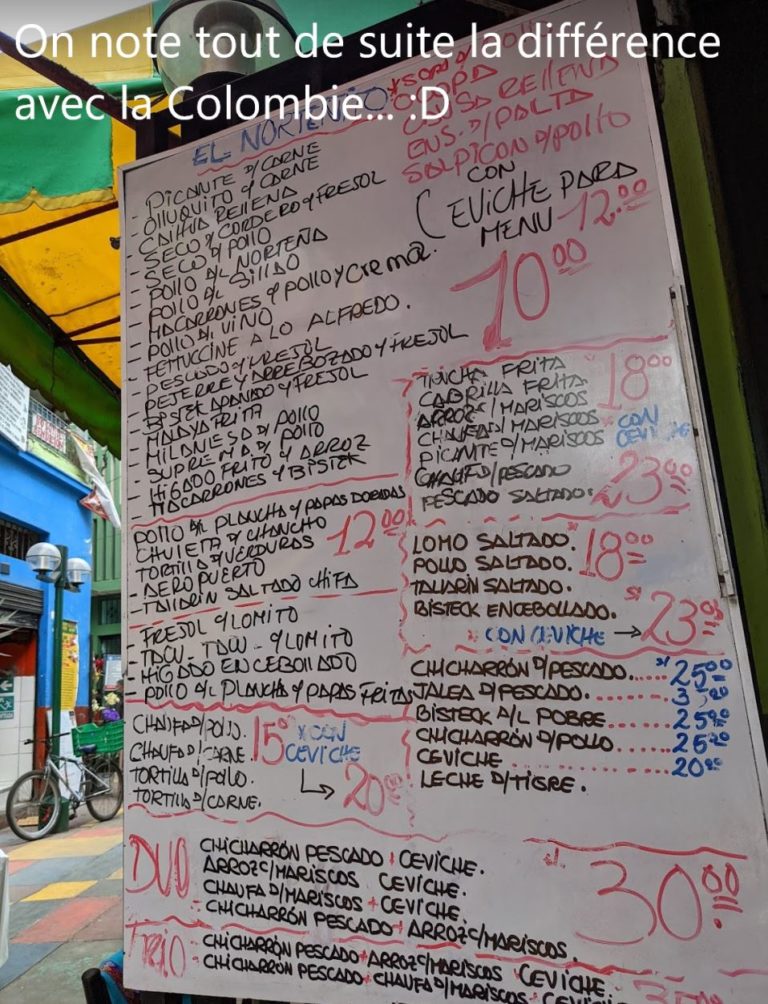 On note tout de suite la différence
avec la Colombie... :D
EL NORTEÑITO
SOPA
CAUSA RELLENA
ENS. D/PALTA
SALPICON D/POLLO
CON
CEVICHE PARA
MENU 12.00
10.00
- PICANTE D/CARNE
- OLLUQUITO C/ CARNE
- CAIHUA RELLENA
- SECO D/ CORDERO Y FRESOL
- SECO D/ POLLO
- POLLO A/L NORTEÑA
- POLLO A/L SILLAO
- MACARRONES C/ POLLO Y CREMA.
- POLLO AL VINO
- FETTUCCINE A LO ALFREDO.
- PESCADO Y FRESOL
- PEJERREY ARREBOZADO Y FRESOL
- BISTEK APANADO Y FRESOL
- MALAYA FRITA
- MILANESA D/ POLLO
- SUPREMA D/ POLLO
- HIGADO FRITO Y ARROZ
- MACARRONES Y BISTEK
POLLO A/L PLANCHA Y PAPAS DORADAS
- CHULETA D/ CHANCHO
TORTILLA D/VERDURAS 12.00
- AEROPUERTO
- TALLARIN SALTADO CHIFA
- FRESOL C/LOMITO
- TACU-TACU-C/LOMITO
- HIGADO ENCEBOLLADO
- POLLO A/L PLANCHA Y PAPAS FRITAS
CHAUFA D/POLLO.
CHAUFA D/CARNE.
TORTILLA D/POLLO.
TORTILLA D/CARNE.
15.00 CON
CEVICHE
20.00
FRITA 18.00
CABRILLA FRITA
ARROZ C/ MARISCOS
CHAUFA D/ MARISCOS CON
PICANTE D/MARISCOS
CHAUFA D/PESCADO 23.00
PESCADO SALTADO.
LOMO SALTADO. 18.00
POLLO SALTADO.
TALLARIN SALTADO.
BISTECK ENCEBOLLADO. S/ 23.00
CON CEVICHE
CHICHARRÓN D/PESCADO..... S/ 25.00
JALEA D/PESCADO.
BISTECK A/L POBRE........ 25.00
CHICHARRÓN D/POLLO...... 25.00
CEVICHE ................ 20.00
LECHE D/TIGRE.
DUO
CHICHARRÓN PESCADO + CEVICHE.
ARROZ C/MARISCOS CEVICHE.
CHAUFA D/MARISCOS + CEVICHE.
- CHICHARRÓN PESCADO + ARROZ C/MARISCOS.
S/. 30.00
TRIO
- CHICHARRÓN PESCADO + ARROZ C/MARISCOS CEVICHE.
- CHICHARRÓN PESCADO + CHAUFA D/MARISCOS